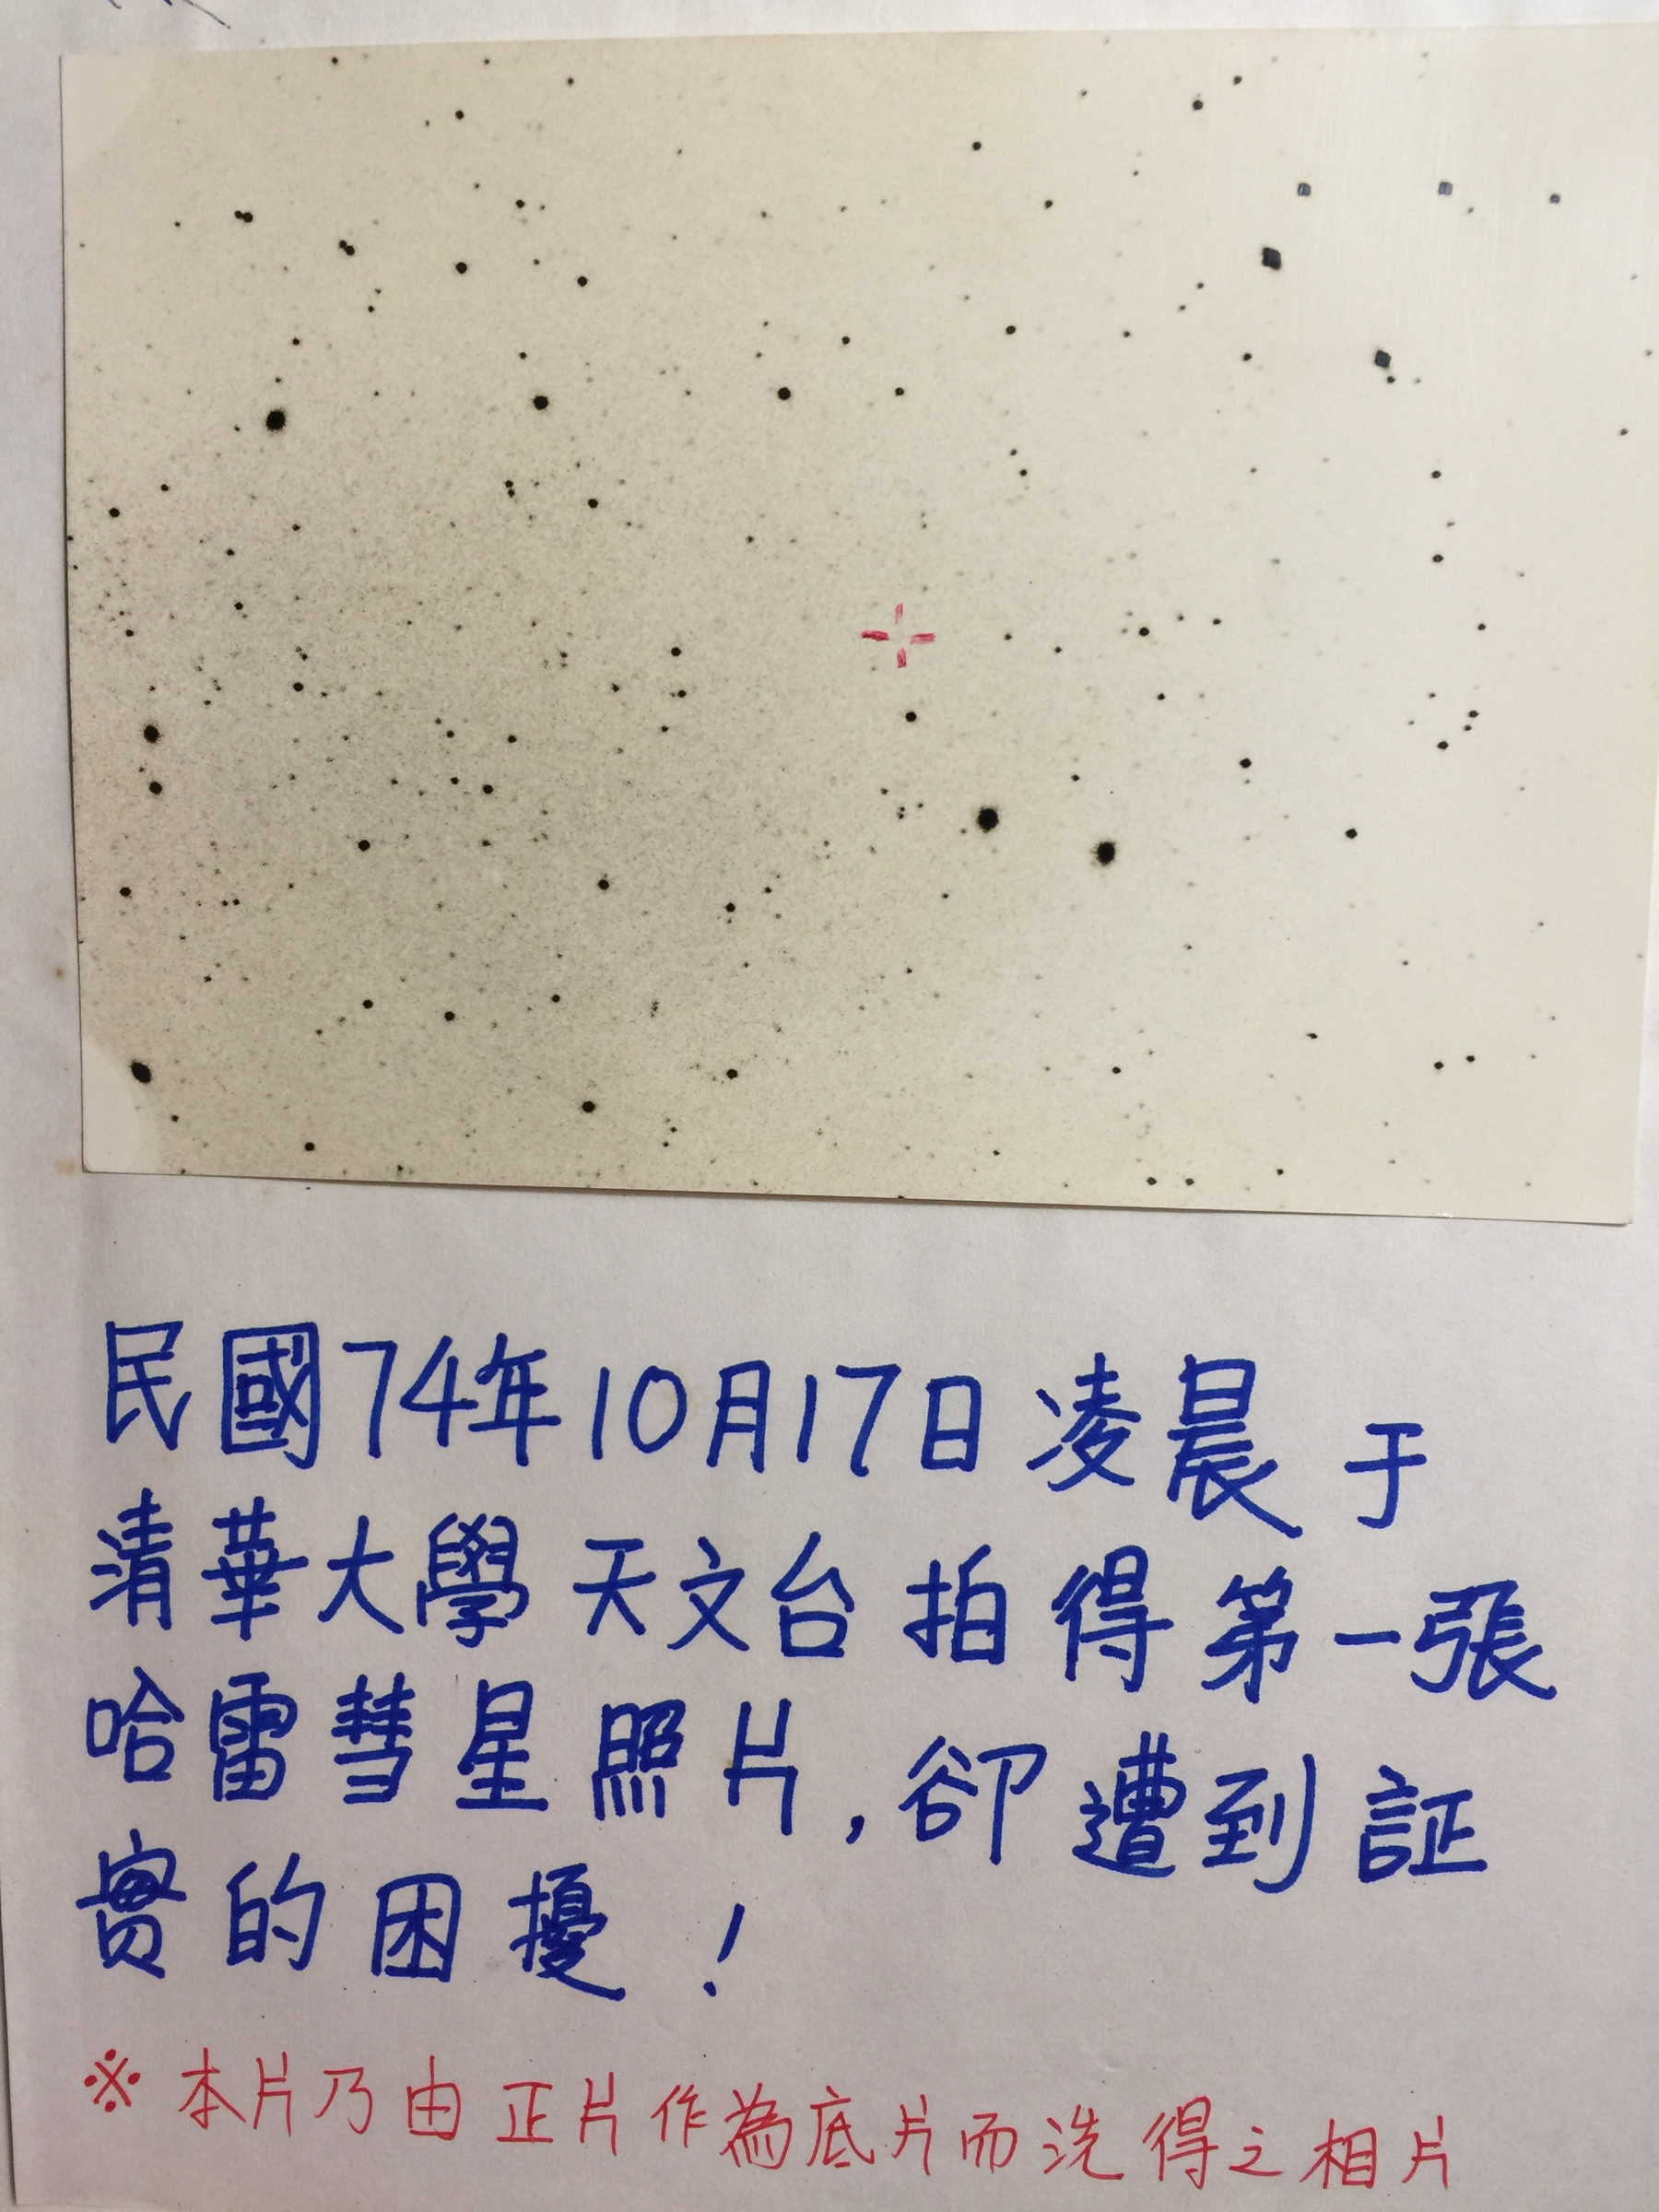 民國74年10月17日凌晨于
清華大學天文台拍得第一張
哈雷彗星照片,卻遭到証
實的困擾!
※本片乃由正片作為底片而洗得之相片